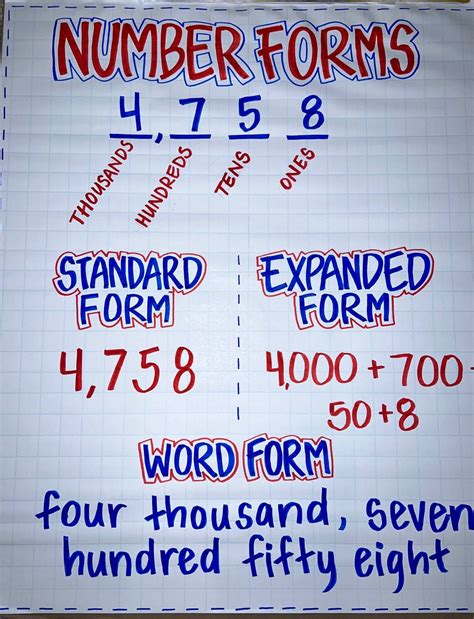 NUMBER FORMS
4,758
THOUSANDS HUNDREDS TENS ONES
STANDARD FORM
4,758
EXPANDED FORM
4,000 + 700 +
50+8
WORD FORM
four thousand, seven
hundred fifty eight